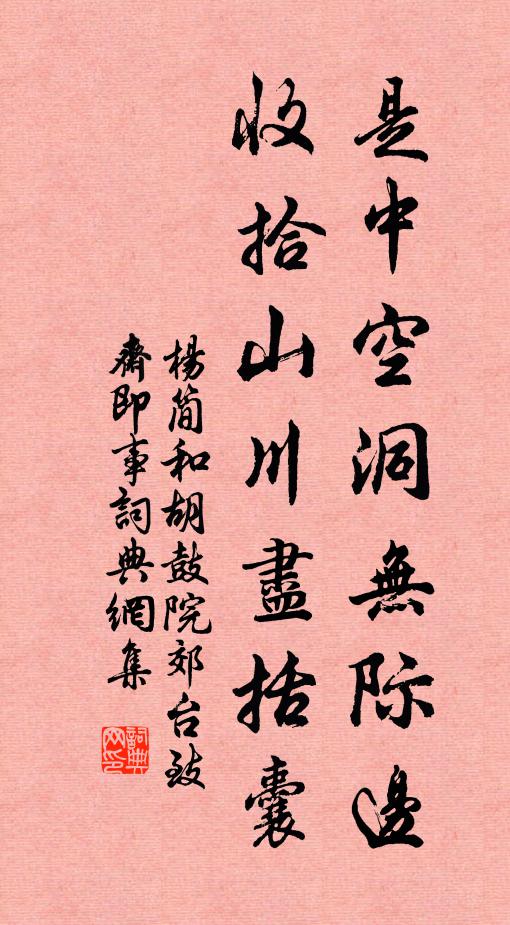 是中空洞無际邊
收拾山川盡括囊
楊简和胡鼓院郊台致
齋即事詞典網集
詞典網印